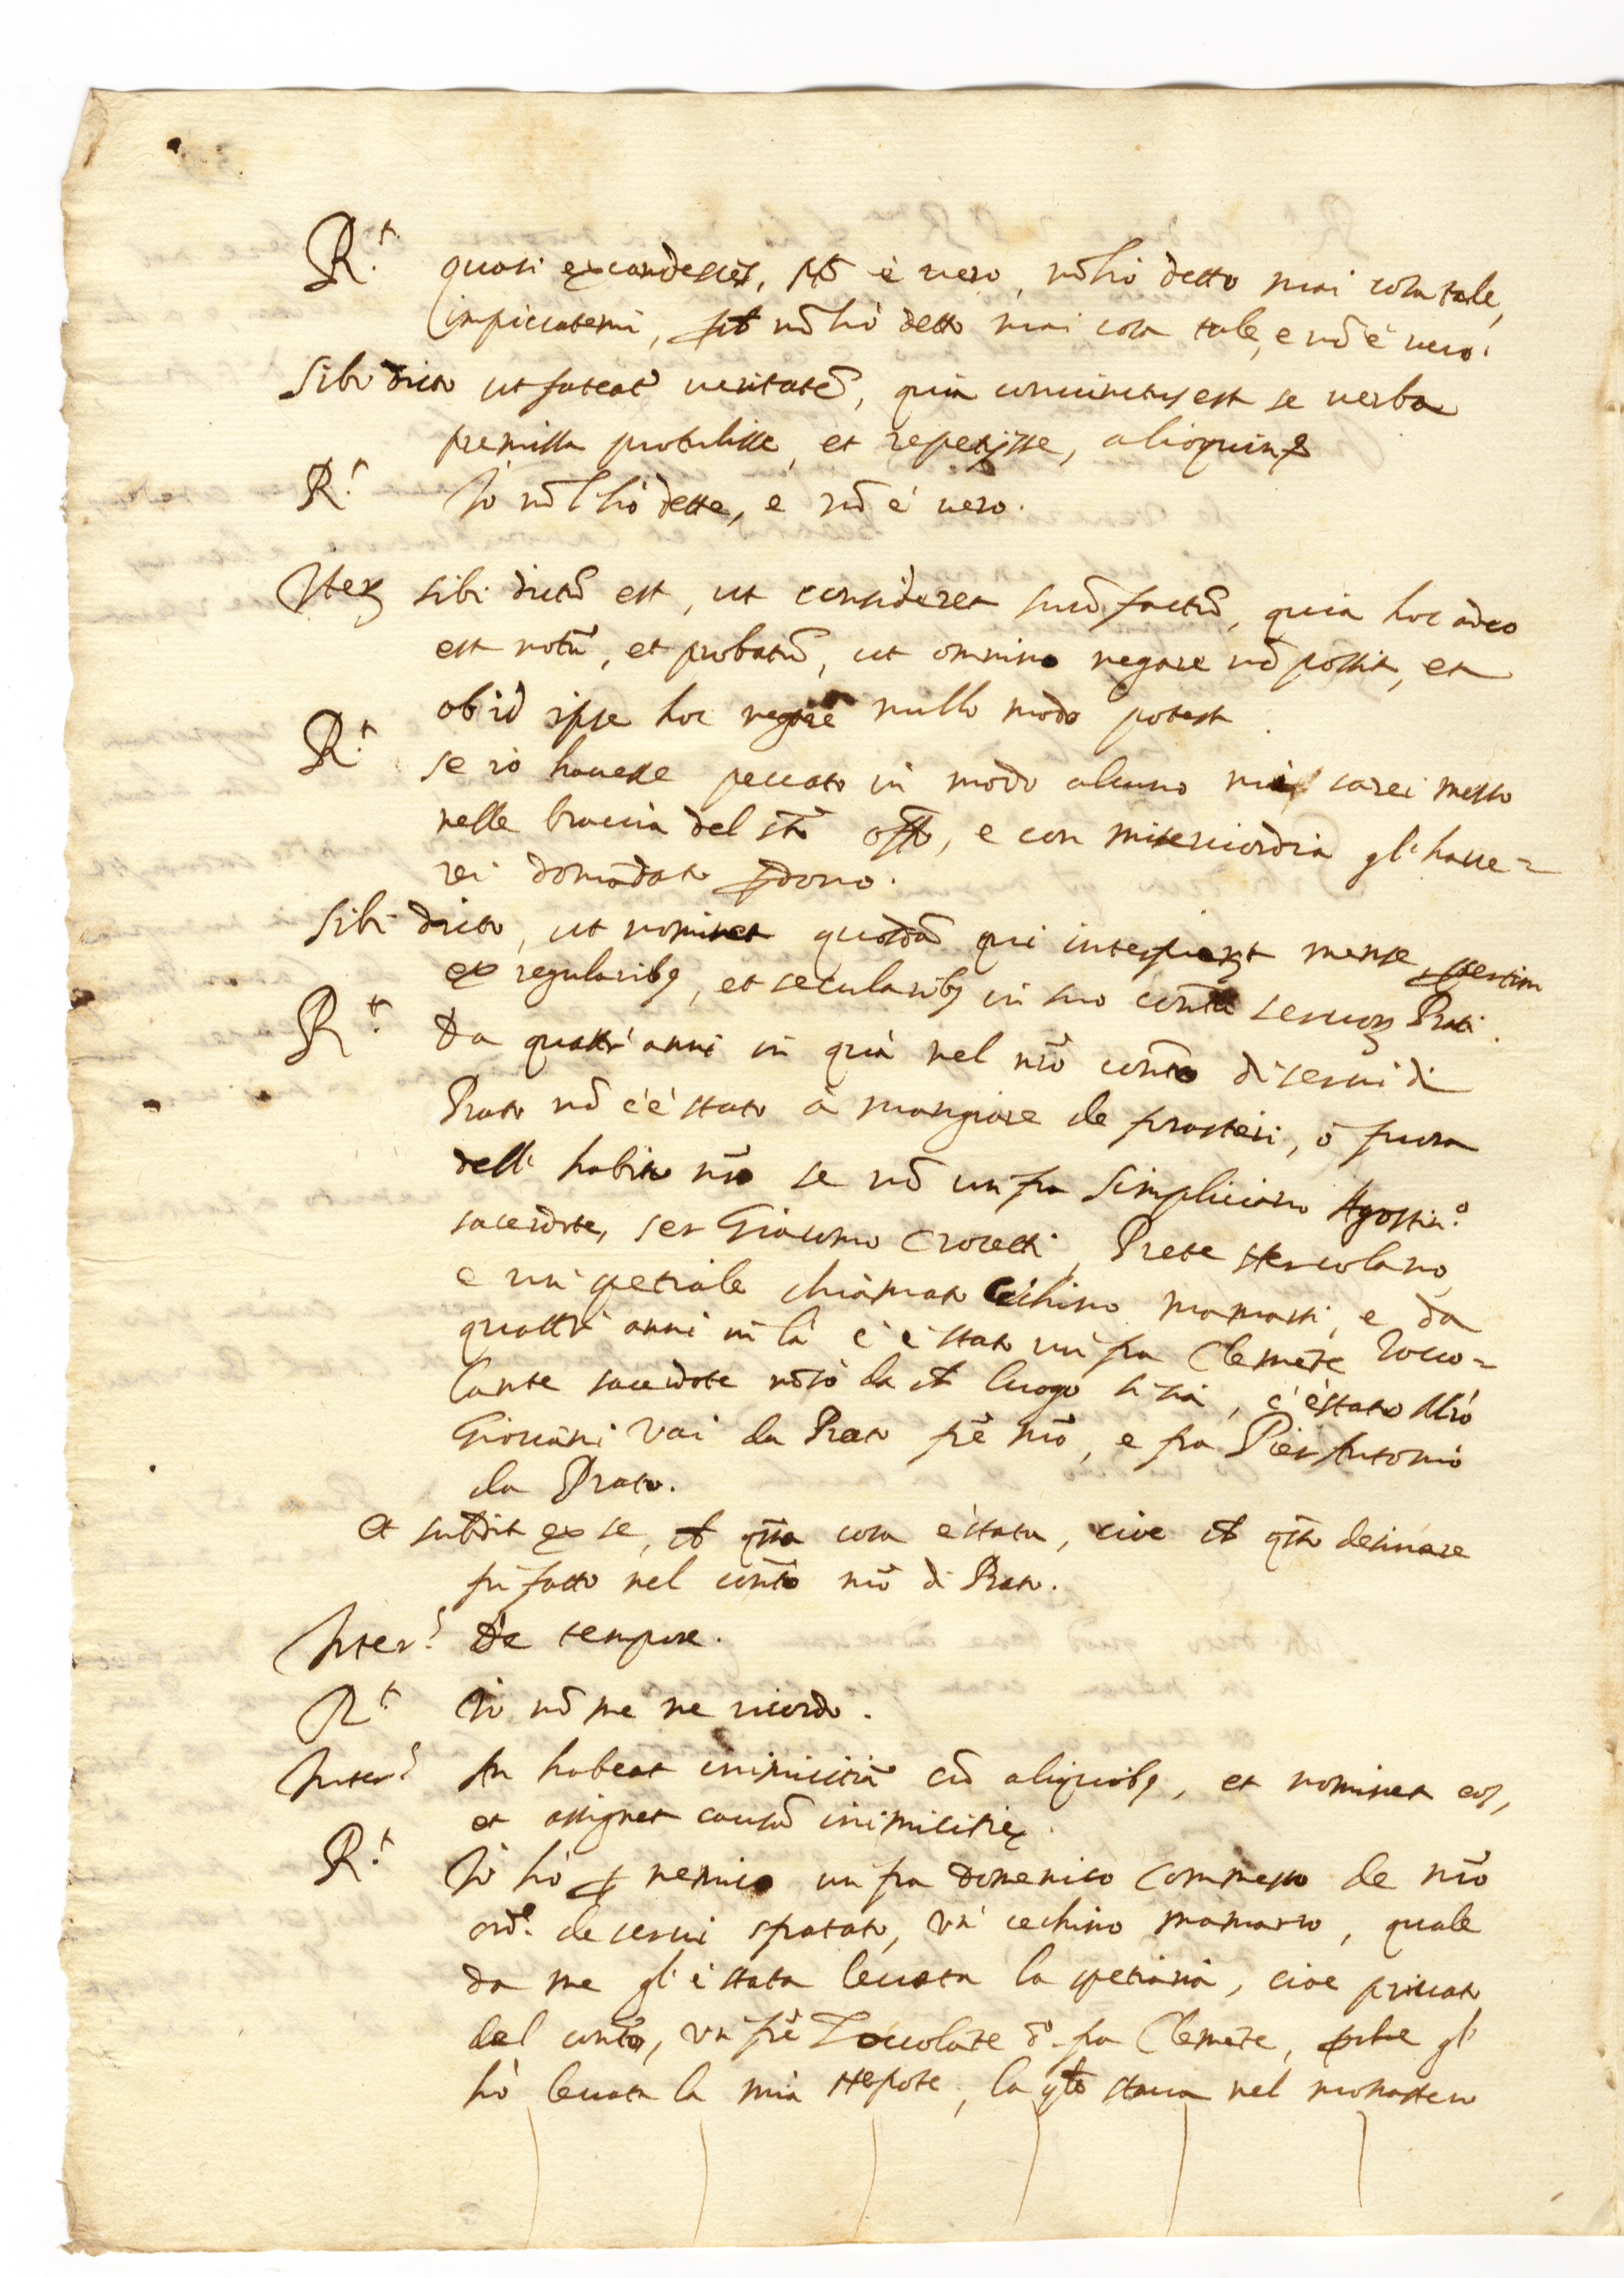 R.t quasi excandescẽs, Nõ è vero, nõ hò detto mai cosa tale,
impiccatemi, ch nõ hò detto mai cosa tale, e nõ è vero.
Sibi dicto ut fateat' veritatẽ, quia convinctus est se verba
premissa protulisse, et repetijsse, alioquin &
R.t Io nõ l'hò dette, e nõ è vero.
Iterũ sibi dictũ est, ut consideret suũ factũ, quia hoc adeo
est notũ, et probatũ, ut omnino negare nõ possit, et
ob id ipse hoc negare nullo modo potest
R.t se io havesse peccato in modo alcuno mi sarei messo
nelle braccia del Sto offo, e con misericordia gl'have=
rei domãdato pdono.
Sibi dicto, ut nominet quosdã qui interfuerũt mense pertim
ex regularibus, et secularibus in suo contu servorũ Prati.
R.t Da quattr'anni in quà nel nrõ conto di servi di
Prato nõ c'è stato à mangiare de forastieri, ò fuora
dell'habito nrõ se nõ un fra Simpliciano Agostin.o
sacerdote, ser Giacomo Crocetti, Prete Hercolano,
e un spetiale chiamato Cechino mamassi, e da
quattr'anni in là c'è stato un fra Clemẽte Zocco=
lante sacerdote nõ sò da ch luogo si sia, c'è stato Mrõ
Giovãni Vai da Prato frẽ nrõ, e fra Pier Antonio
da Prato.
Et subdit ex se, ch qsta cosa è stata, cioe ch qsto desinare
fu fatto nel conto nrõ di Prato.
Inter.s De tempore.
R.t Io nõ me ne ricordo.
Inter.s An habeat inimicitiã cũ aliquibus, et nominet eos,
et assignet causã inimicitiae.
R.t Io hò p nemico un fra Domenico Commesso de nrõ
ord.e de servi sfratato, un cechino mamasso, quale
da me gl'è stata levata la spetiaria, cioe privato
del conto, un frẽ Zoccolãte do fra Clemẽte, pche gl'
hò levata la mia Nepote, la qle stava nel monastero